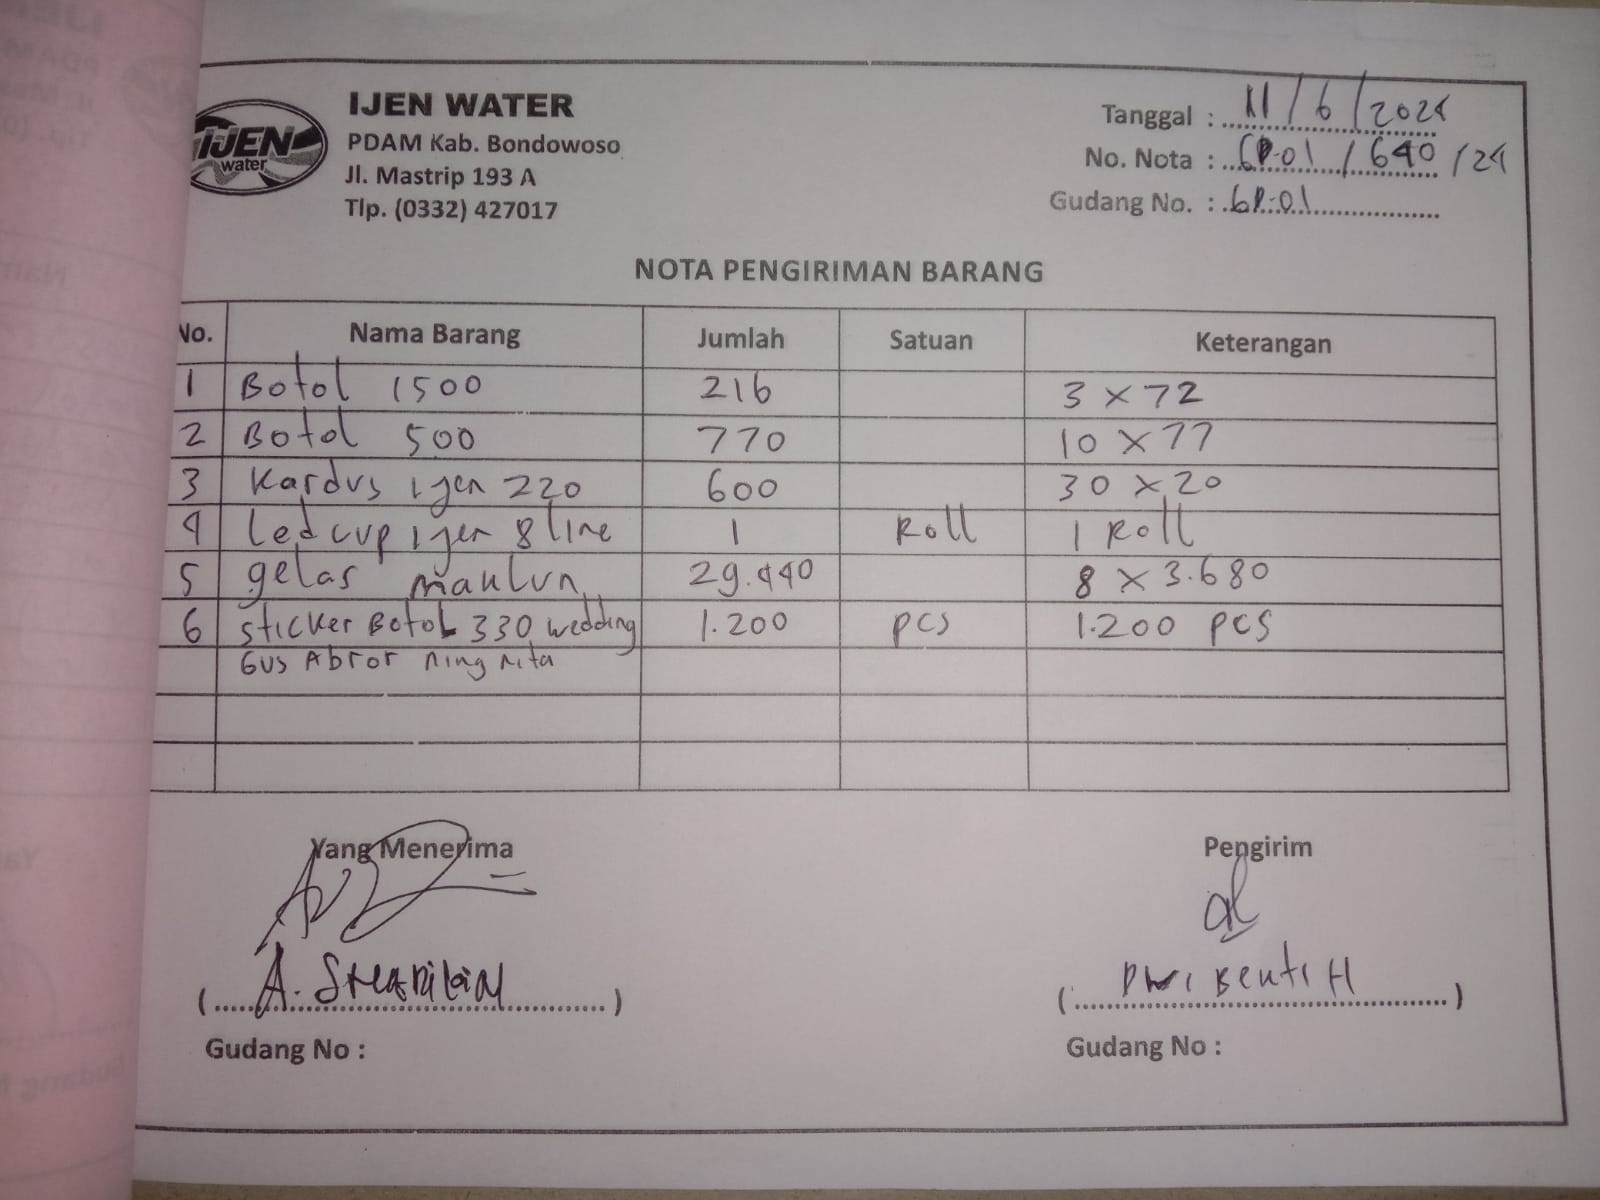 IJEN water
IJEN WATER
PDAM Kab. Bondowoso
Jl. Mastrip 193 A
Tlp. (0332) 427017
Tanggal : 11/6/2024
No. Nota : GP.01 / 640 /24
Gudang No. : GP.01
NOTA PENGIRIMAN BARANG
No. Nama Barang Jumlah Satuan Keterangan
1 Botol 1500 216 3 x 72
2 Botol 500 770 10 x 77
3 Kardus ijen 220 600 30 x 20
4 Ledcup ijen 8 line 1 Roll 1 Roll
5 gelas maulun 29.440 8 x 3.680
6 Sticker Botol 330 wedding 1.200 pcs 1.200 pcs
Gus Abror ning nita
Yang Menerima Pengirim
(A. ) (Dwi H)
Gudang No : Gudang No :